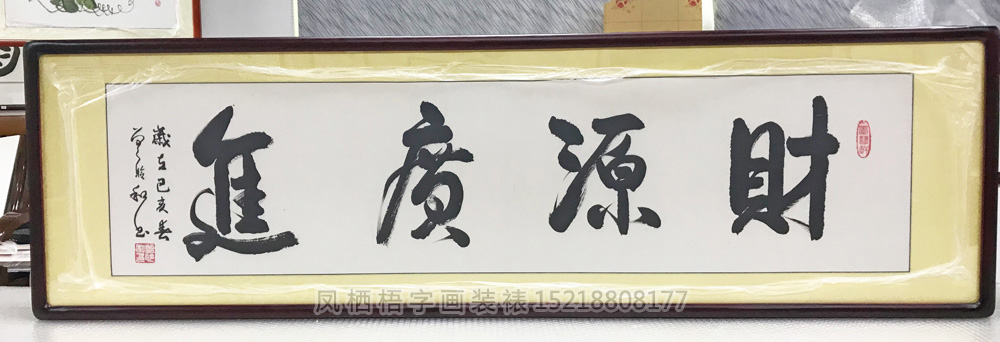 財源廣進
歲在己亥春
凤栖梧字画装裱15218808177